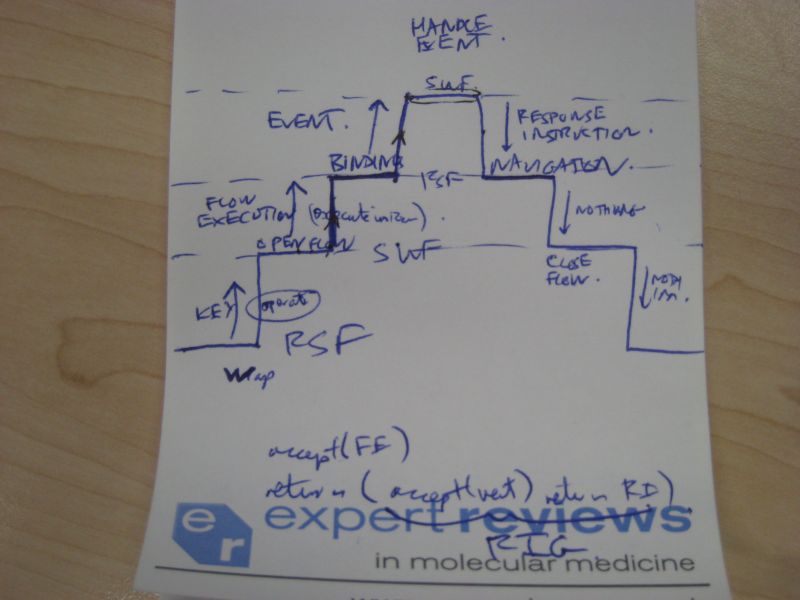 HANDLE
EVENT.
SWF
EVENT.
RESPONSE
INSTRUCTION.
BINDING
RSF
NAVIGATION.
FLOW
EXECUTION
NOTHING
OPEN FLOW
SWF
CLOSE
FLOW.
KEY
operate
RSF
Wrap
accept(FE)
return (accept(vent) return RD)
er
expert reviews
RIG
in molecular medicine